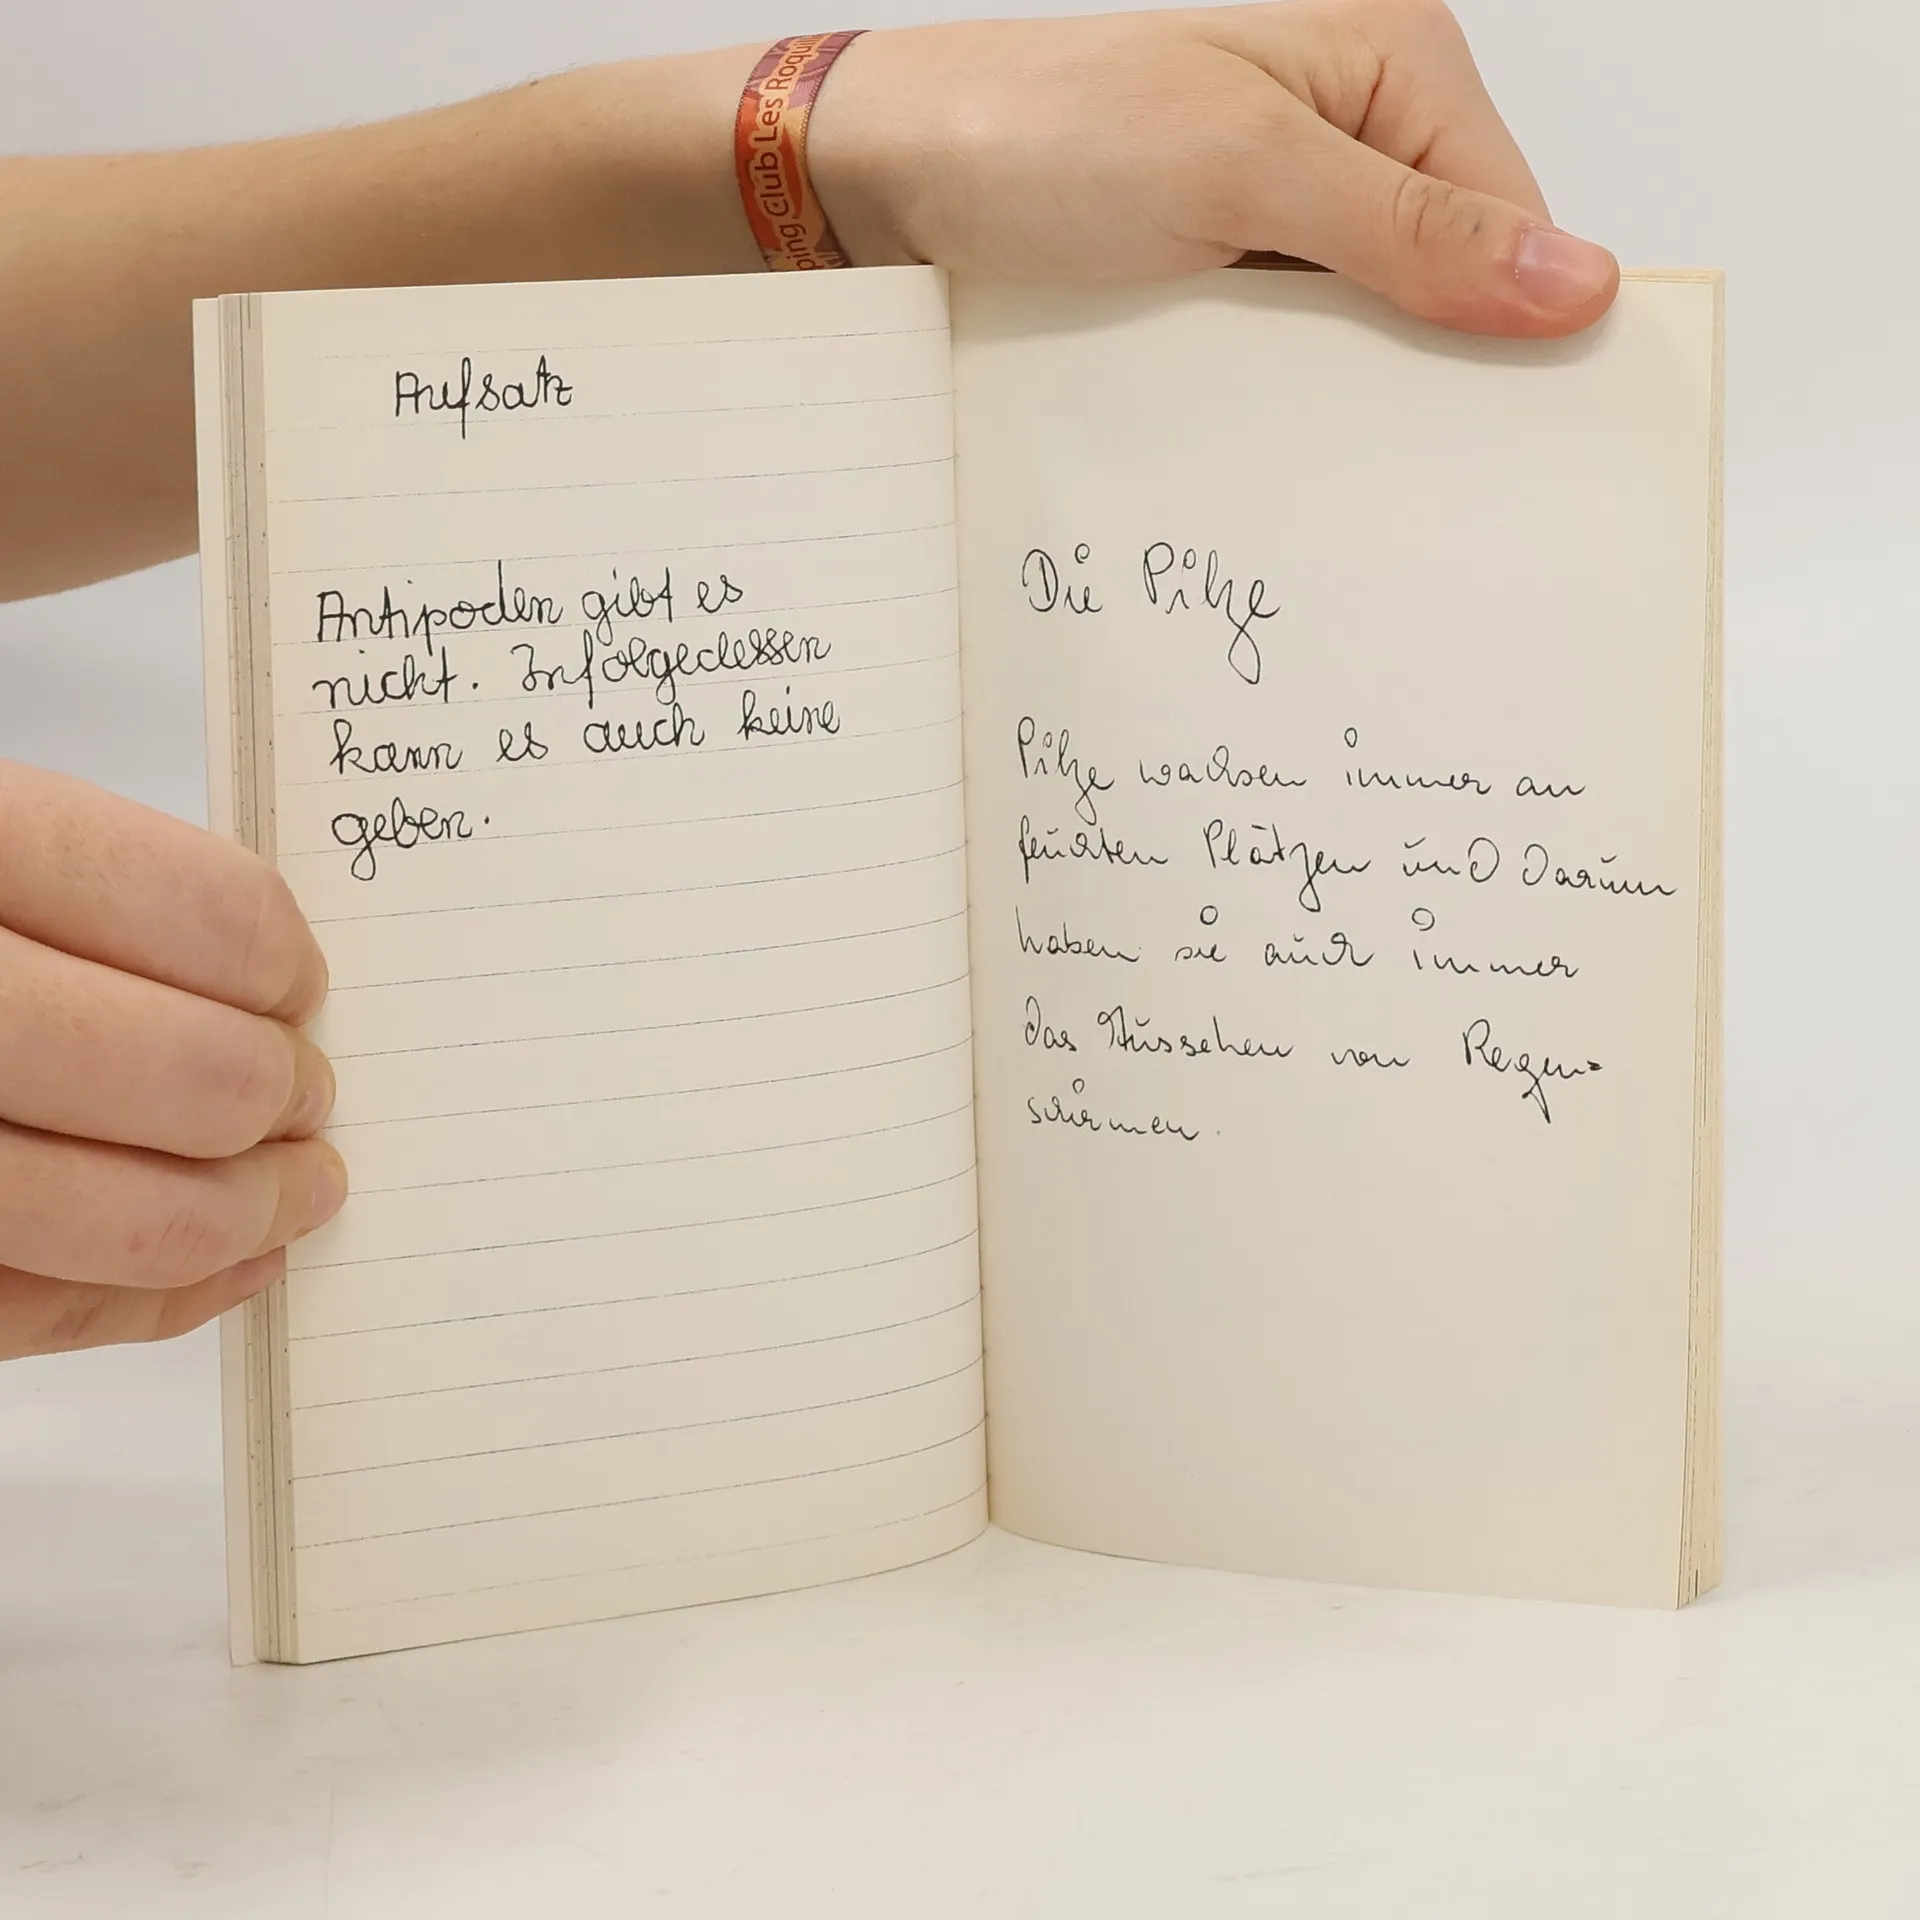 ping Club Les Roquill
Aufsatz
Antipoden gibt es
nicht. Infolgedessen
kann es auch keine
geben.
Die Pilze
Pilze wachsen immer an
feuchten Plätzen und darum
haben sie auch immer
das Aussehen von Regen=
schirmen.